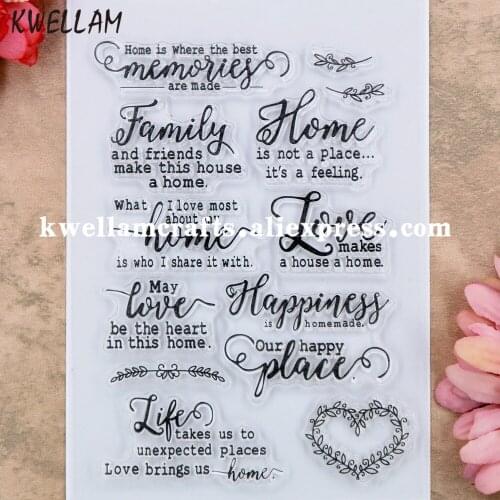 KWELLAM
Home is where the best
memories
are made
Family
and friends
make this house
a home.
Home
is not a place...
it's a feeling.
What I love most
about my
home
is who I share it with.
Love
makes
a house a home.
kwellamcrafts.aliexpress.com
May
love
be the heart
in this home.
Happiness
is homemade.
Our happy
place
Life
takes us to
unexpected places
Love brings us home.